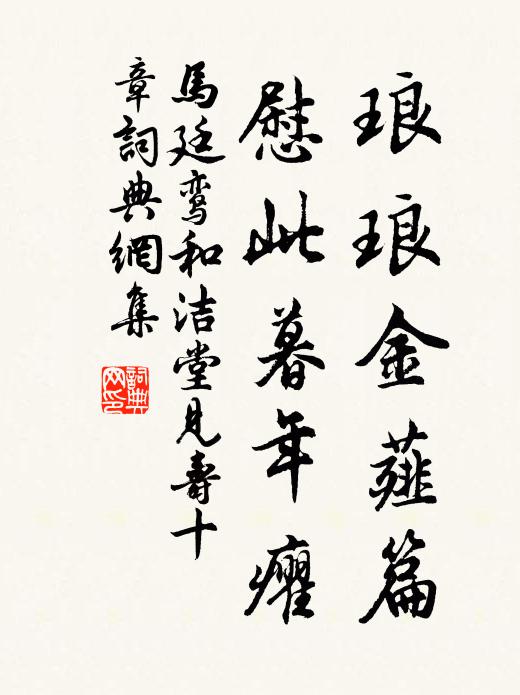 琅琅金薤篇
慰此暮年癯
馬廷鸾和洁堂見壽十
章詞典網集
詞典
网印